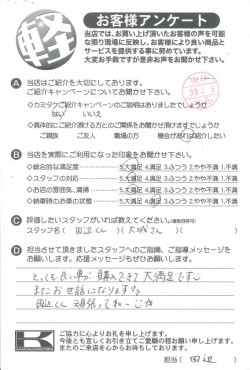 軽
お客様アンケート
当店では、お買い上げ頂いたお客様の声を可能
な限り現場に反映し、お客様により良い商品と
サービスを提供する事に努めています。
大変お手数ですが是非お声をお聞かせ下さい。
A 当店はご紹介を大切にしております。
ご紹介キャンペーンについてお聞かせ下さい。
◇カミタケご紹介キャンペーンのご説明はありましたでしょうか
はい いいえ
◇具体的にご紹介頂ける方とのご関係をお聞かせ頂けますでしょうか
ご親族 ご友人 職場の方 機会があれば紹介したい
B 当店を実際にご利用になった印象をお聞かせ下さい。
◇総合的な満足度 5.大満足 4.満足 3.ふつう 2.やや不満 1.不満
◇スタッフの対応 5.大満足 4.満足 3.ふつう 2.やや不満 1.不満
◇お店の雰囲気、清掃 5.大満足 4.満足 3.ふつう 2.やや不満 1.不満
◇納車時のお車の状態 5.大満足 4.満足 3.ふつう 2.やや不満 1.不満
C 評価したいスタッフがいれば教えてください。
スタッフ名( 田辺くん )( 大城さん )
D 担当させて頂きましたスタッフへのご指摘、ご指導メッセージを
お願いします。応援メッセージもぜひお願いします。
とっても良い車が購入できて大満足です
またお世話になります
田辺くん 頑張ってね
K
ご協力に心よりお礼を申し上げます。
今後とも宜しくお引き立てご愛顧の程お願い申し上げます。
またのご来店を心からお待ちしております。
担当( 田辺 )